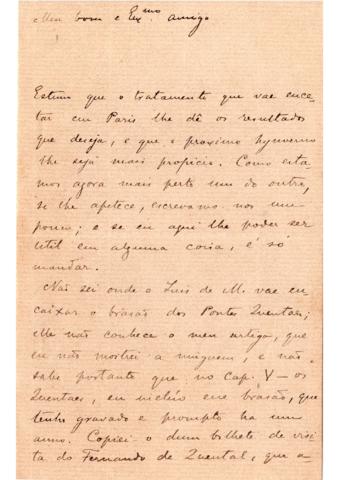 Meu bom e Ex.mo amigo
Estimo que o tratamento que vae ence-
tar em Paris lhe dê os resultados
que deseja, e que o proximo hynverno
lhe seja mais propicio. Como esta-
mos agora mais perto um do outro,
se lhe apetece, escrevamo-nos um
pouco; e se eu aqui lhe poder ser
util em alguma coisa, é só
mandar.
Não sei onde o Luis de M. vae en-
caixar o brasão dos Pontes Quentaes;
elle não conhece o meu artigo, que
eu não mostrei a ninguem, e não
sabe portanto que no Cap. V — os
Quentaes, eu incluo esse brasão, que
tenho gravado e prompto ha um
anno. Copiei-o dum bilhete de visi-
ta do Fernando de Quental, que a